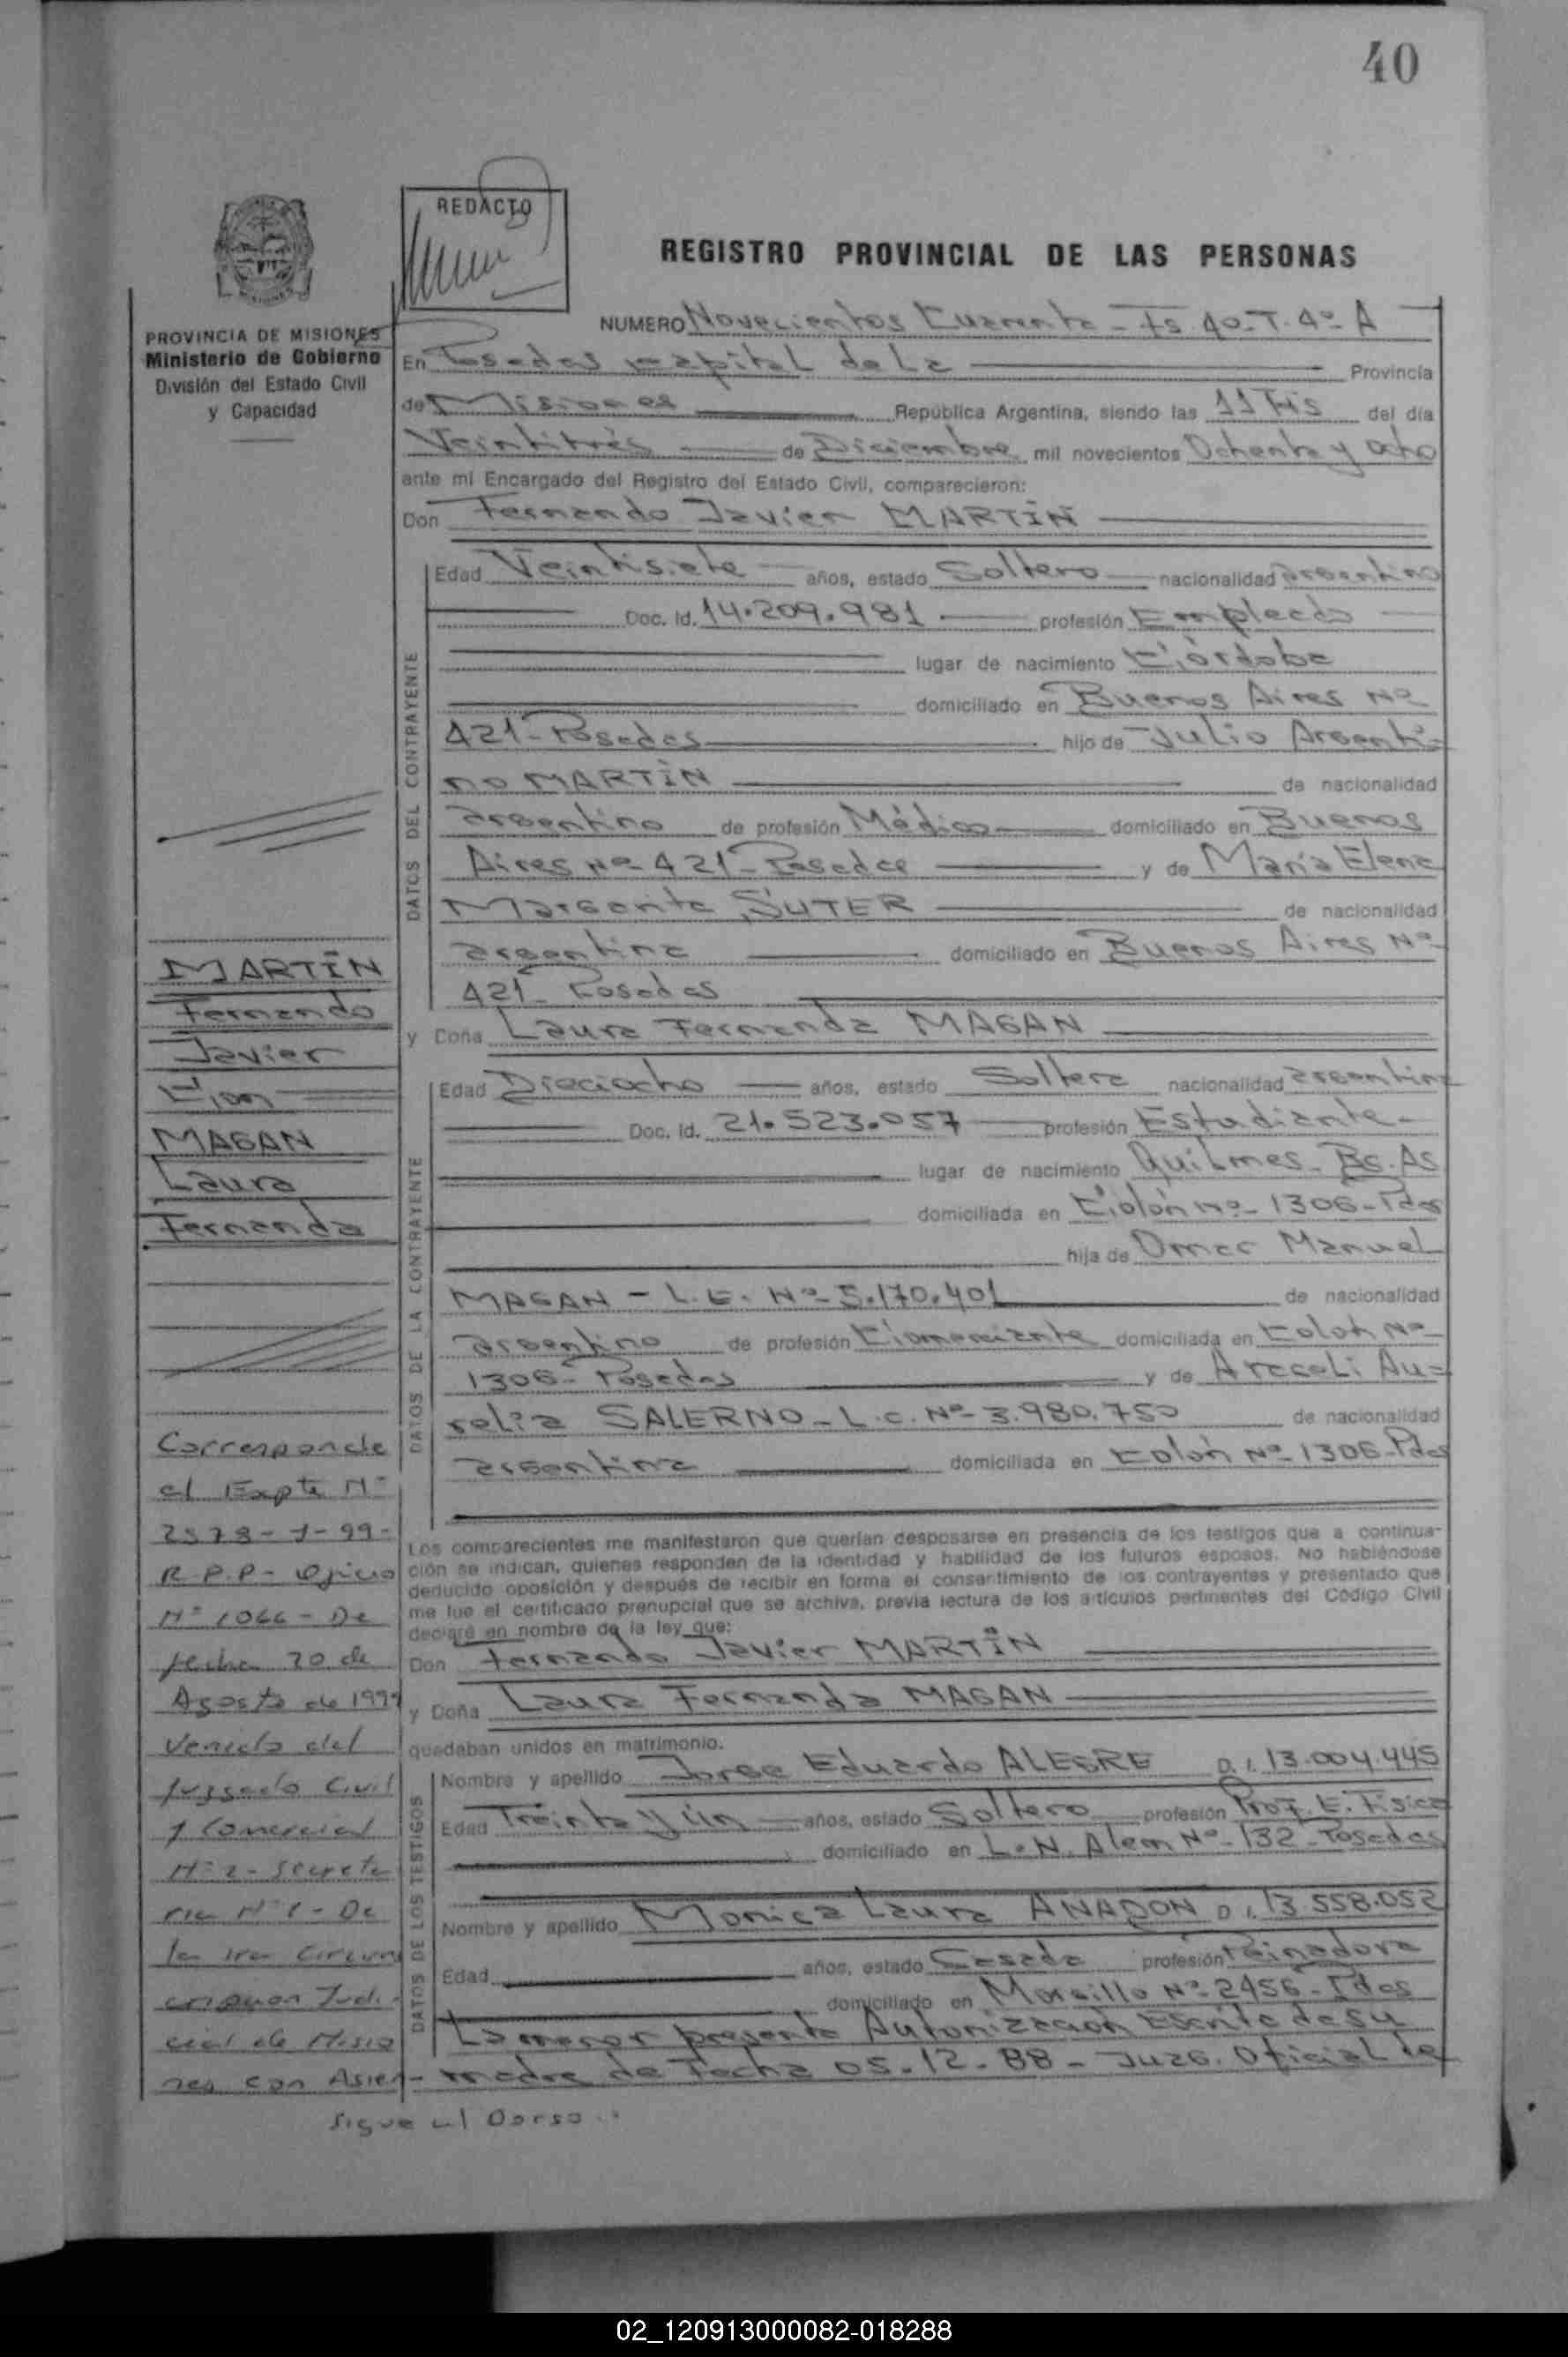 40
REDACTO
REGISTRO PROVINCIAL DE LAS PERSONAS
PROVINCIA DE MISIONES
Ministerio de Gobierno
División del Estado Civil
y Capacidad
NUMERO Novecientos Cuarenta - Fs 40 - T. 4º - A
En Posadas capital de La Provincia
de Misiones República Argentina, siendo las 11 Hs del día
Veintitrés de Diciembre mil novecientos Ochenta y Ocho
ante mi Encargado del Registro del Estado Civil, comparecieron:
Don Fernando Javier MARTIN
DATOS DEL CONTRAYENTE
Edad Veintisiete años, estado Soltero nacionalidad argentino
Doc. Id. 14.209.981 profesión Empleado
lugar de nacimiento Córdoba
domiciliado en Buenos Aires Nº
421 - Posadas hijo de Julio Argenti-
no MARTIN de nacionalidad
argentino de profesión Médico domiciliado en Buenos
Aires Nº 421 - Posadas y de María Elena
Margarita SUTER de nacionalidad
argentina domiciliado en Buenos Aires Nº
421 - Posadas
y Doña Laura Fernanda MAGAN
DATOS DE LA CONTRAYENTE
Edad Dieciocho años, estado Soltera nacionalidad argentina
Doc. Id. 21.523.057 profesión Estudiante -
lugar de nacimiento Quilmes - Bs. As
domiciliada en Colón Nº - 1306 - Pdas
hija de Omar Manuel
MAGAN - L.E. Nº 5.170.401 de nacionalidad
argentino de profesión Comerciante domiciliada en Colón Nº
1306 - Posadas y de Araceli Au=
relia SALERNO - L.C. Nº 3.980.750 de nacionalidad
argentina domiciliada en Colón Nº - 1306 - Pdas
Los comparecientes me manifestaron que querían desposarse en presencia de los testigos que a continua-
ción se indican, quienes responden de la identidad y habilidad de los futuros esposos. No habiéndose
deducido oposición y después de recibir en forma el consentimiento de los contrayentes y presentado que
me fue el certificado prenupcial que se archiva, previa lectura de los artículos pertinentes del Código Civil
declaré en nombre de la ley que:
Don Fernando Javier MARTIN
y Doña Laura Fernanda MAGAN
quedaban unidos en matrimonio.
DATOS DE LOS TESTIGOS
Nombre y apellido Jorge Eduardo ALEGRE D.I. 13.004.445
Edad Treinta y ún años, estado Soltero profesión Prof. E. Física
domiciliado en L.N. Alem Nº - 132 - Posadas
Nombre y apellido Monica Laura ANADON D.I. 13.558.052
Edad años, estado Casada profesión Peinadora
domiciliado en Nº 2456 - Pdas
La menor presenta Autorización Escrita de su
madre de Fecha 05-12-88 - Juzg. Oficial de
MARTIN
Fernando
Javier
Con
MAGAN
Laura
Fernanda
Corresponde
al Expte Nº
R.P.P - Oficio
Nº 1066 - De
fecha 20 de
Agosto de 1999
Venido del
Juzgado Civil
y Comercial
Nº 2 - Secreta
ria Nº 1 - De
la 1ra Circuns
cripcion Judi-
cial de Misio
nes con Asien-
Sigue al Dorso..
02_120913000082-018288